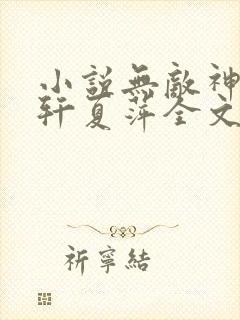 小說無敵神
軒夏萍全文
祈寧結